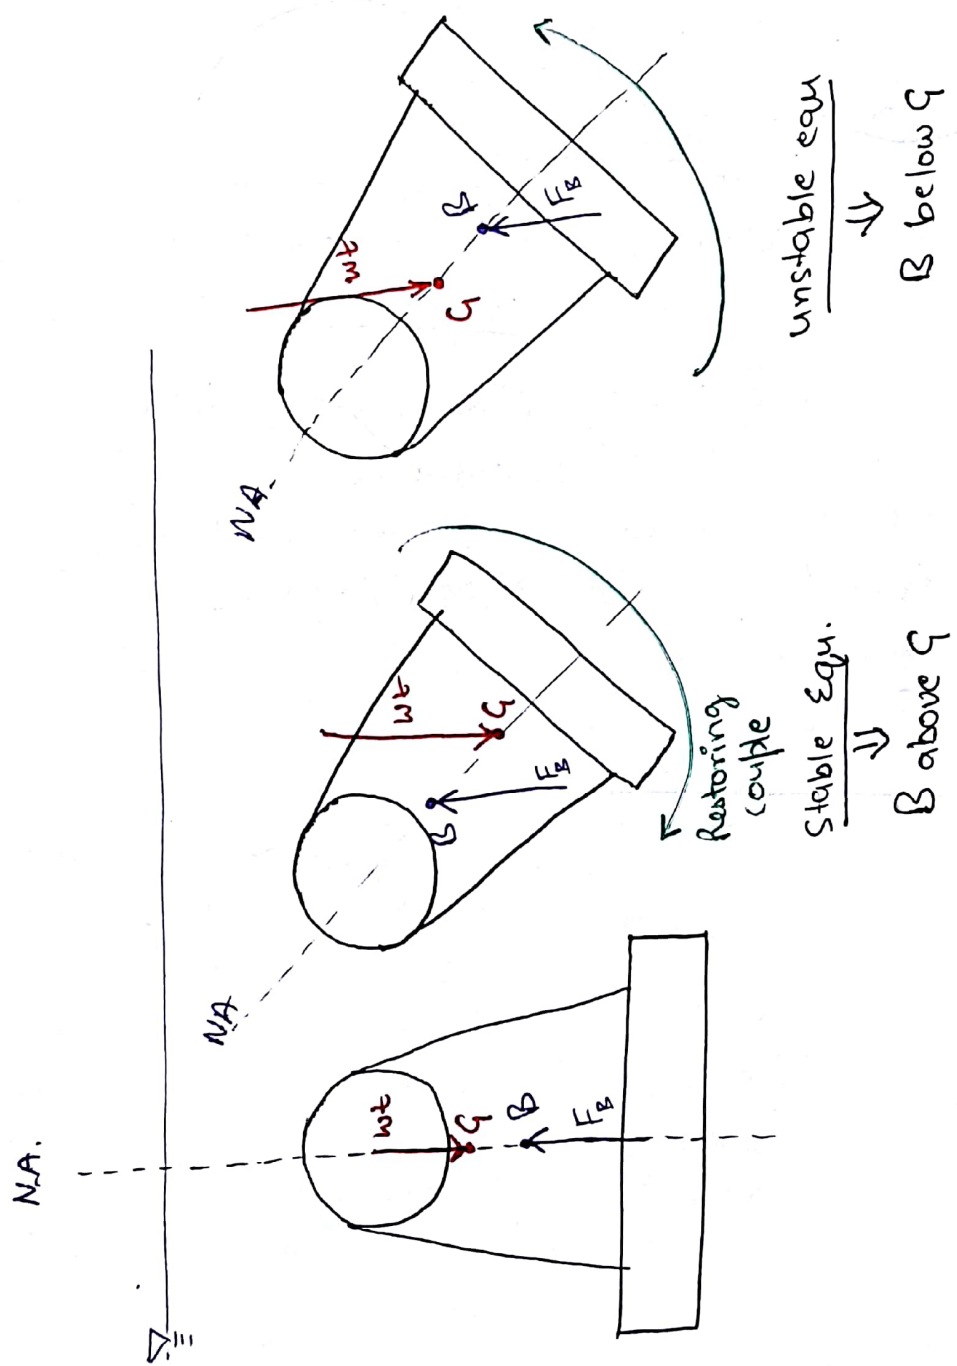 N.A.
wt
G
B
FB
NA
wt
G
B
FB
Restoring
couple
Stable Equ.
⇓
B above G
NA.
wt
G
B
FB
Unstable equ
⇓
B below G